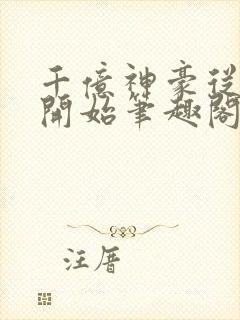 千億神豪從
開始筆趣閣
汪厝